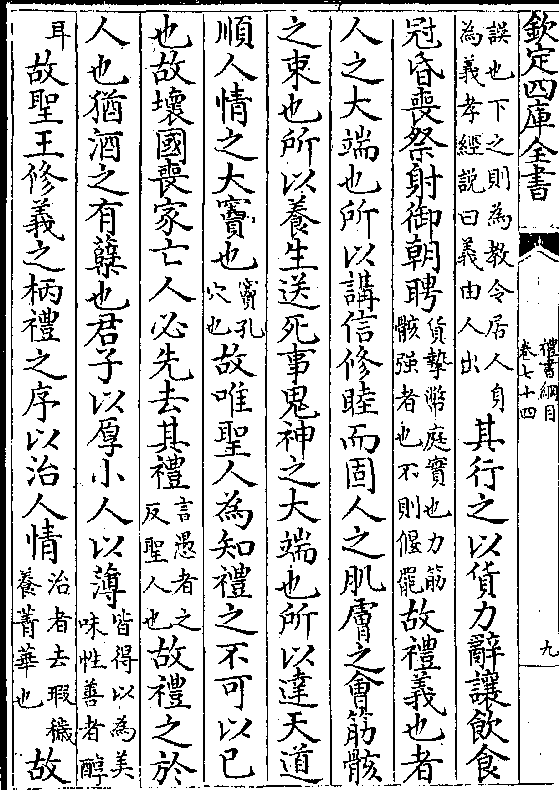 欽定四庫全書
禮書綱目
卷七十四
九
誤也下之則為教令居人身
為義孝經說曰義由人出
其行之以貨力辭讓飲食
冠昏喪祭射御朝聘
貨摯幣庭實也力筋
骸强者也不則偃罷
故禮義也者
人之大端也所以講信修睦而固人之肌膚之會筋骸
之束也所以養生送死事鬼神之大端也所以達天道
順人情之大竇也
竇孔
穴也
故唯聖人為知禮之不可以已
也故壞國喪家亡人必先去其禮
言愚者之
反聖人也
故禮之於
人也猶酒之有蘖也君子以厚小人以薄
皆得以為美
味性善者醇
耳
故聖王修義之柄禮之序以治人情
治者去瑕穢
養菁華也
故